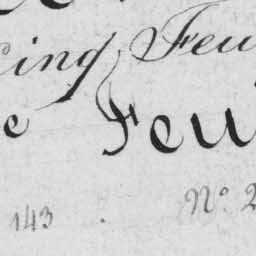 cing Feu
e Feu
143 . Nº 2